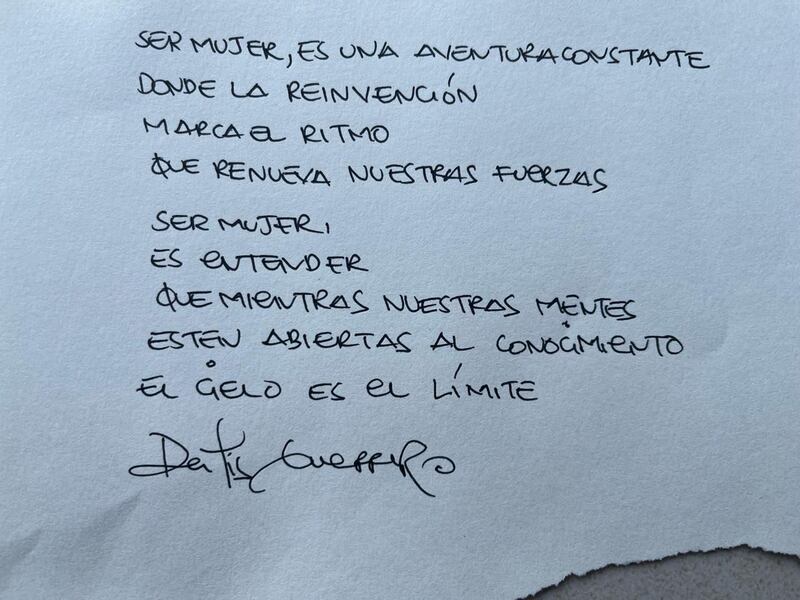 SER MUJER, ES UNA AVENTURA CONSTANTE
DONDE LA REINVENCIÓN
MARCA EL RITMO
QUE RENUEVA NUESTRAS FUERZAS
SER MUJER,
ES ENTENDER
QUE MIENTRAS NUESTRAS MENTES
ESTEN ABIERTAS AL CONOCIMIENTO
EL CIELO ES EL LÍMITE
Guerrero